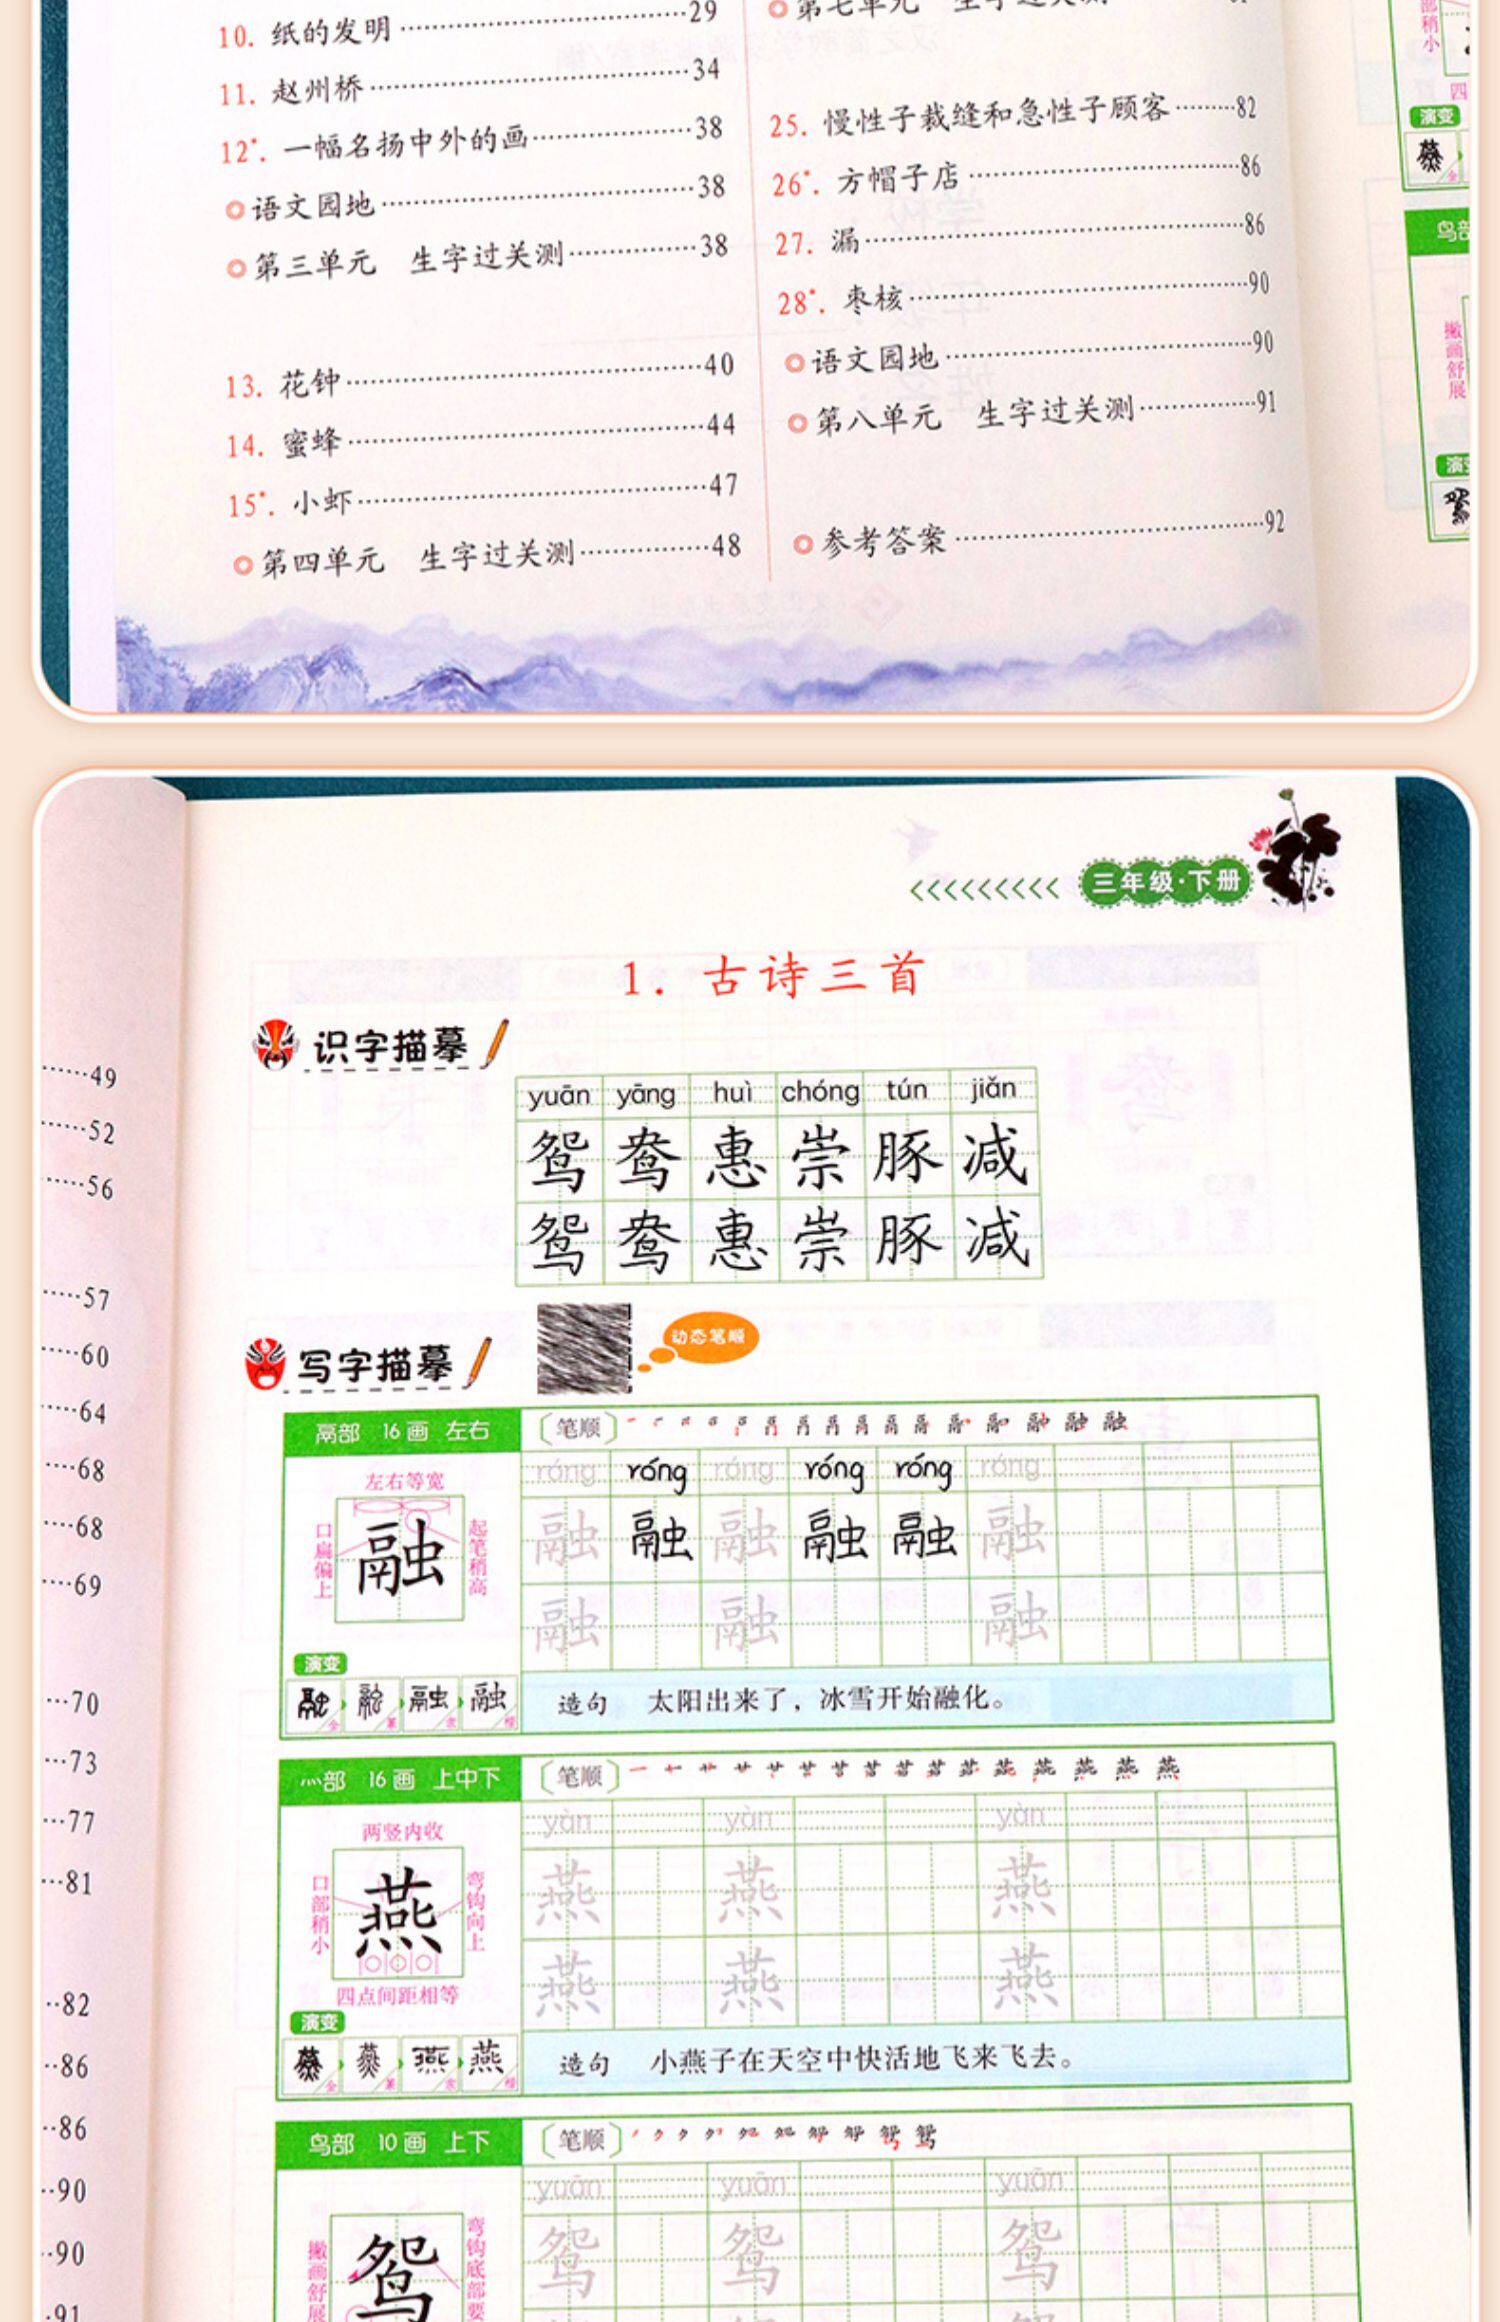 10. 纸的发明 29
11. 赵州桥 34
12*. 一幅名扬中外的画 38
语文园地 38
第三单元 生字过关测 38
13. 花钟 40
14. 蜜蜂 44
15*. 小虾 47
第四单元 生字过关测 48
第七单元 生字过关测
25. 慢性子裁缝和急性子顾客 82
26*. 方帽子店 86
27. 漏 86
28*. 枣核 90
语文园地 90
第八单元 生字过关测 91
参考答案 92
部稍小
四
演变
鸟部
撇画舒展
演变
49
52
56
57
60
64
68
68
69
70
73
77
81
82
86
86
90
90
91
三年级·下册
1. 古诗三首
识字描摹
yuān yāng huì chóng tún jiǎn
鸳 鸯 惠 崇 豚 减
鸳 鸯 惠 崇 豚 减
写字描摹
动态笔顺
鬲部 16画 左右
〔笔顺〕
左右等宽
口扁偏上
融
起笔稍高
róng róng róng róng róng róng
融 融 融 融 融 融
融 融 融
演变
融 融
造句 太阳出来了，冰雪开始融化。
灬部 16画 上中下
〔笔顺〕
两竖内收
口部稍小
燕
弯钩向上
四点间距相等
yàn yàn yàn
燕 燕 燕
燕 燕 燕
演变
燕 燕
造句 小燕子在天空中快活地飞来飞去。
鸟部 10画 上下
〔笔顺〕
撇画舒展
鸳
弯钩底部要
yuān yuān yuān
鸳 鸳 鸳